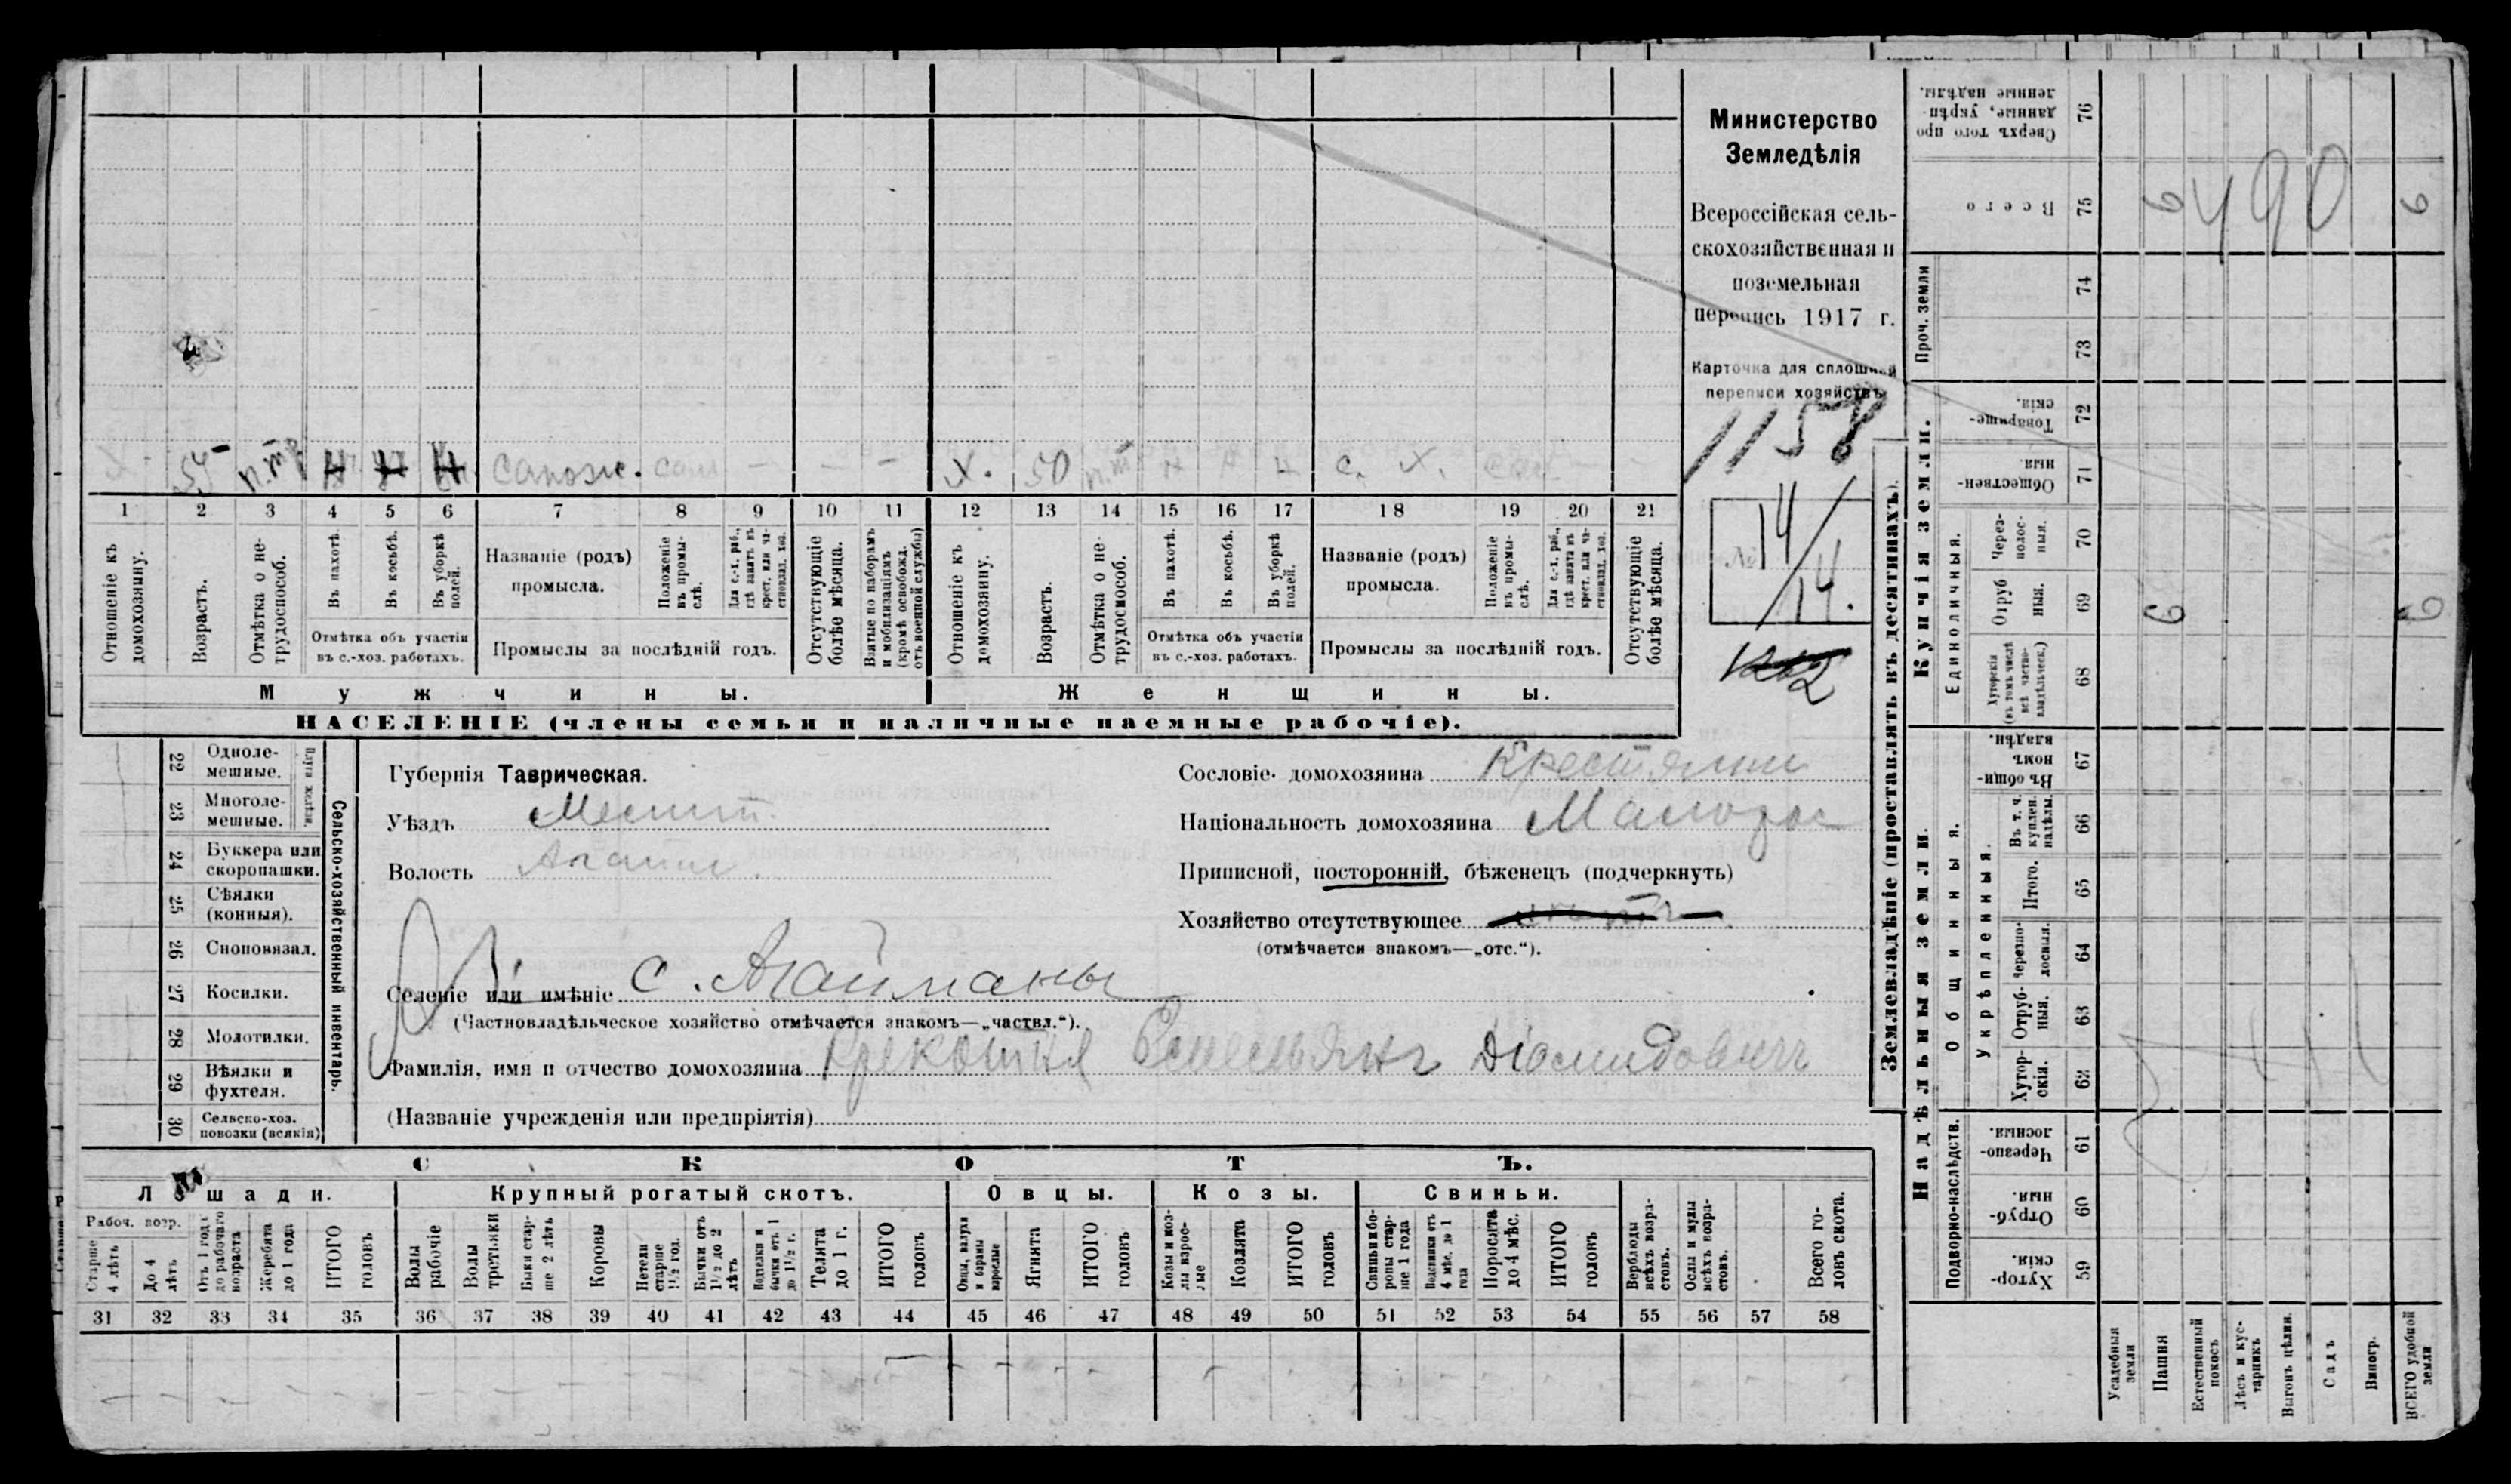 Министерство
Земледѣлія
Всероссійская сель-
скохозяйственная и
поземельная
перепись 1917 г.
Карточка для сплошной
переписи хозяйствъ
1158
№ 14/14.
х. 55 н.т. сапожн. сам — — — х. 50 н.т. с. х. сам — —
1 2 3 4 5 6 7 8 9 10 11 12 13 14 15 16 17 18 19 20 21
Отношеніе къ домохозяину.
Возрастъ.
Отмѣтка о не-трудоспособ.
Въ пахотѣ.
Въ косьбѣ.
Въ уборкѣ полей.
Отмѣтка объ участіи
въ с.-хоз. работахъ.
Названіе (родъ)
промысла.
Положеніе въ промы-слѣ.
Для с.-х. раб., гдѣ занятъ въ крест. или ча-стновлад. хоз.
Промыслы за послѣдній годъ.
Отсутствующіе болѣе мѣсяца.
Взятые по наборамъ и мобилизаціямъ (кромѣ освобожд. отъ военной службы)
Отношеніе къ домохозяину.
Возрастъ.
Отмѣтка о не-трудоспособ.
Въ пахотѣ.
Въ косьбѣ.
Въ уборкѣ полей.
Отмѣтка объ участіи
въ с.-хоз. работахъ.
Названіе (родъ)
промысла.
Положеніе въ промы-слѣ.
Для с.-х. раб., гдѣ занята въ крест. или ча-стновлад. хоз.
Промыслы за послѣдній годъ.
Отсутствующіе болѣе мѣсяца.
Мужчины. Женщины.
НАСЕЛЕНІЕ (члены семьи и наличные наемные рабочіе).
Сельско-хозяйственный инвентарь.
Плуги желѣзн.
22 Одноле-мешные.
23 Многоле-мешные.
24 Буккера или скоропашки.
25 Сѣялки (конныя).
26 Сноповязал.
27 Косилки.
28 Молотилки.
29 Вѣялки и фухтеля.
30 Сельско-хоз. повозки (всякія)
Губернія Таврическая.
Уѣздъ Мелит.
Волость Агайм.
Селеніе или имѣніе с. Агайманы
(Частновладѣльческое хозяйство отмѣчается знакомъ—„частвл.“).
Фамилія, имя и отчество домохозяина Діомидовичъ
(Названіе учрежденія или предпріятія)
Сословіе домохозяина Крестьянин
Національность домохозяина Малорос
Приписной, посторонній, бѣженецъ (подчеркнуть)
Хозяйство отсутствующее
(отмѣчается знакомъ—„отс.“).
СКОТЪ.
Лошади. Крупный рогатый скотъ. Овцы. Козы. Свиньи.
Рабоч. возр.
Старше 4 лѣтъ
До 4 лѣтъ
Отъ 1 года до рабочаго возраста
Жеребята до 1 года
ИТОГО головъ
Волы рабочіе
Волы третьяки
Быки стар-ше 2 лѣтъ
Коровы
Нетели старше 1½ год.
Бычки отъ 1½ до 2 лѣтъ
Бычки отъ 1 до 1½ г.
Телята до 1 г.
ИТОГО головъ
Овцы, валухи и бараны взрослые
Ягнята
ИТОГО головъ
Козы и коз-лы взрос-лые
Козлята
ИТОГО головъ
Свиньи и бо-ровы стар-ше 1 года
Подсвинки отъ 4 мѣс. до 1 года
Поросята до 4 мѣс.
ИТОГО головъ
Верблюды всѣхъ возра-стовъ.
Ослы и мулы всѣхъ возра-стовъ.
Всего го-ловъ скота.
31 32 33 34 35 36 37 38 39 40 41 42 43 44 45 46 47 48 49 50 51 52 53 54 55 56 57 58
Землевладѣніе (проставлять въ десятинахъ).
Надѣльныя земли. Купчія земли. Проч. земли
Подворно-наслѣдств.
Общинныя.
Укрѣпленныя.
Единоличныя.
Хутор-скія. 59
Отруб-ныя. 60
Черезпо-лосныя. 61
Хутор-скія. 62
Отруб-ныя. 63
Черезпо-лосныя. 64
Итого. 65
Въ т. ч. куплен. надѣлы. 66
Въ общин-номъ владѣн. 67
Хуторскія (въ томъ числѣ всѣ частно-владѣльческ.) 68
Отруб ныя. 69 6 6
Через-полос-ныя. 70
Обществен-ныя 71
Товарище-скія. 72
73
74
Всего 75 6 6
490
Сверхъ того про данные, укрѣп-ленные надѣлы. 76
Усадебныя земли
Пашня
Естественный покосъ
Лѣсъ и кус-тарникъ
Выгонъ цѣлин.
Садъ
Виногр.
ВСЕГО удобной земли